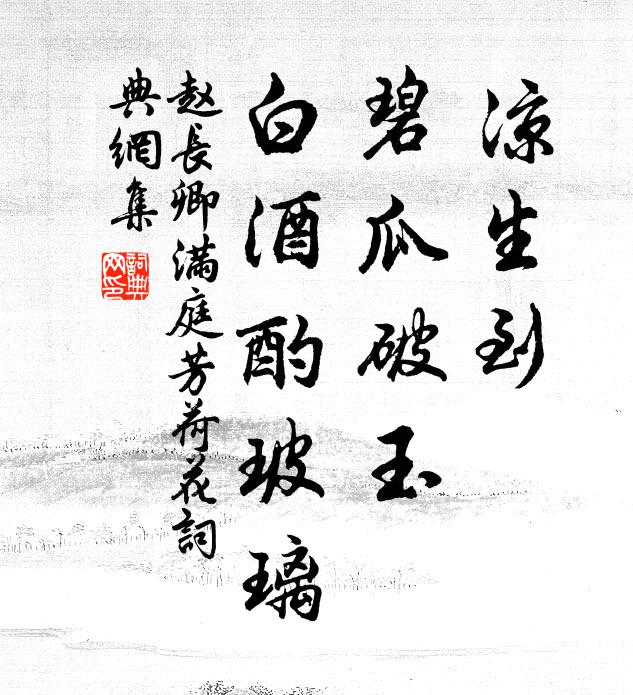 凉生到
碧瓜破玉
白酒酌玻璃
赵長卿满庭芳荷花詞
典網集
詞典
网印